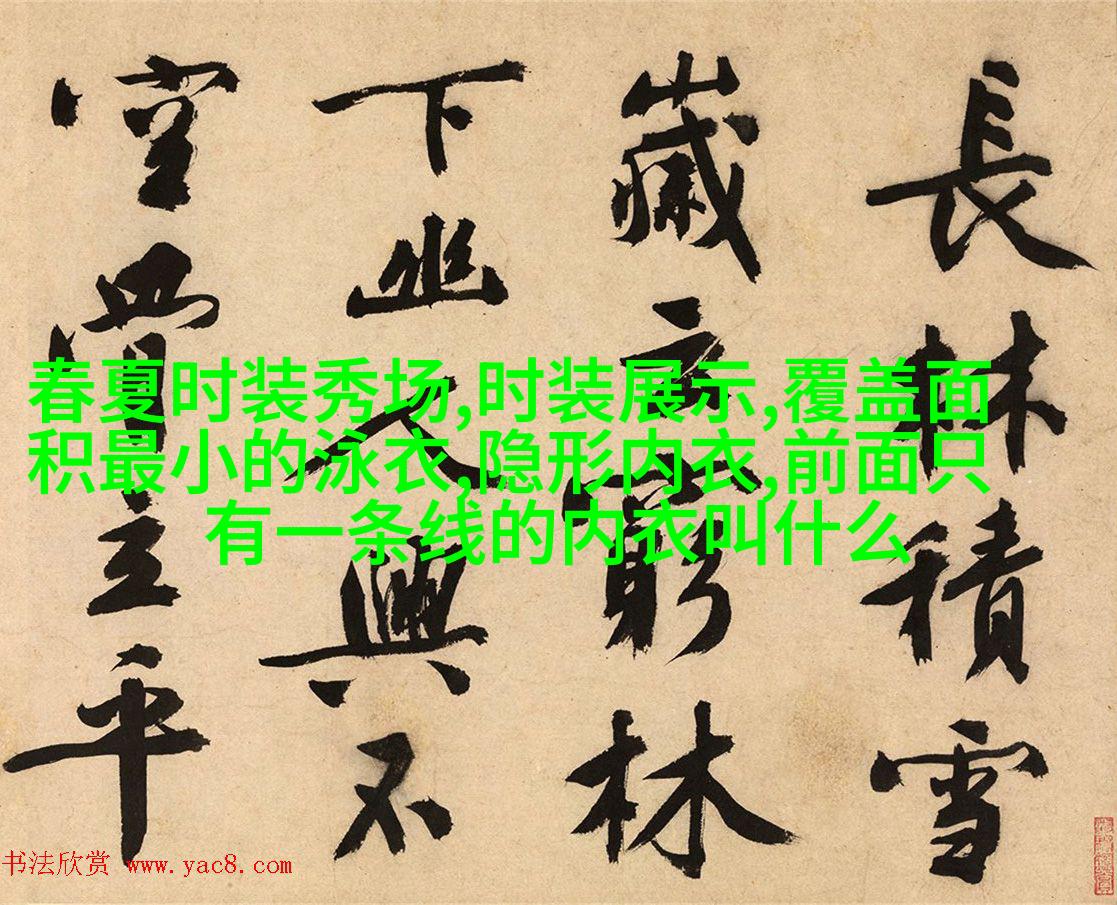 長林積雪
嵗云窮林
下幽人興不
空曾立平
春夏时装秀场,时装展示,覆盖面
积最小的泳衣,隐形内衣,前面只
有一条线的内衣叫什么
书法欣赏 www.yac8.com